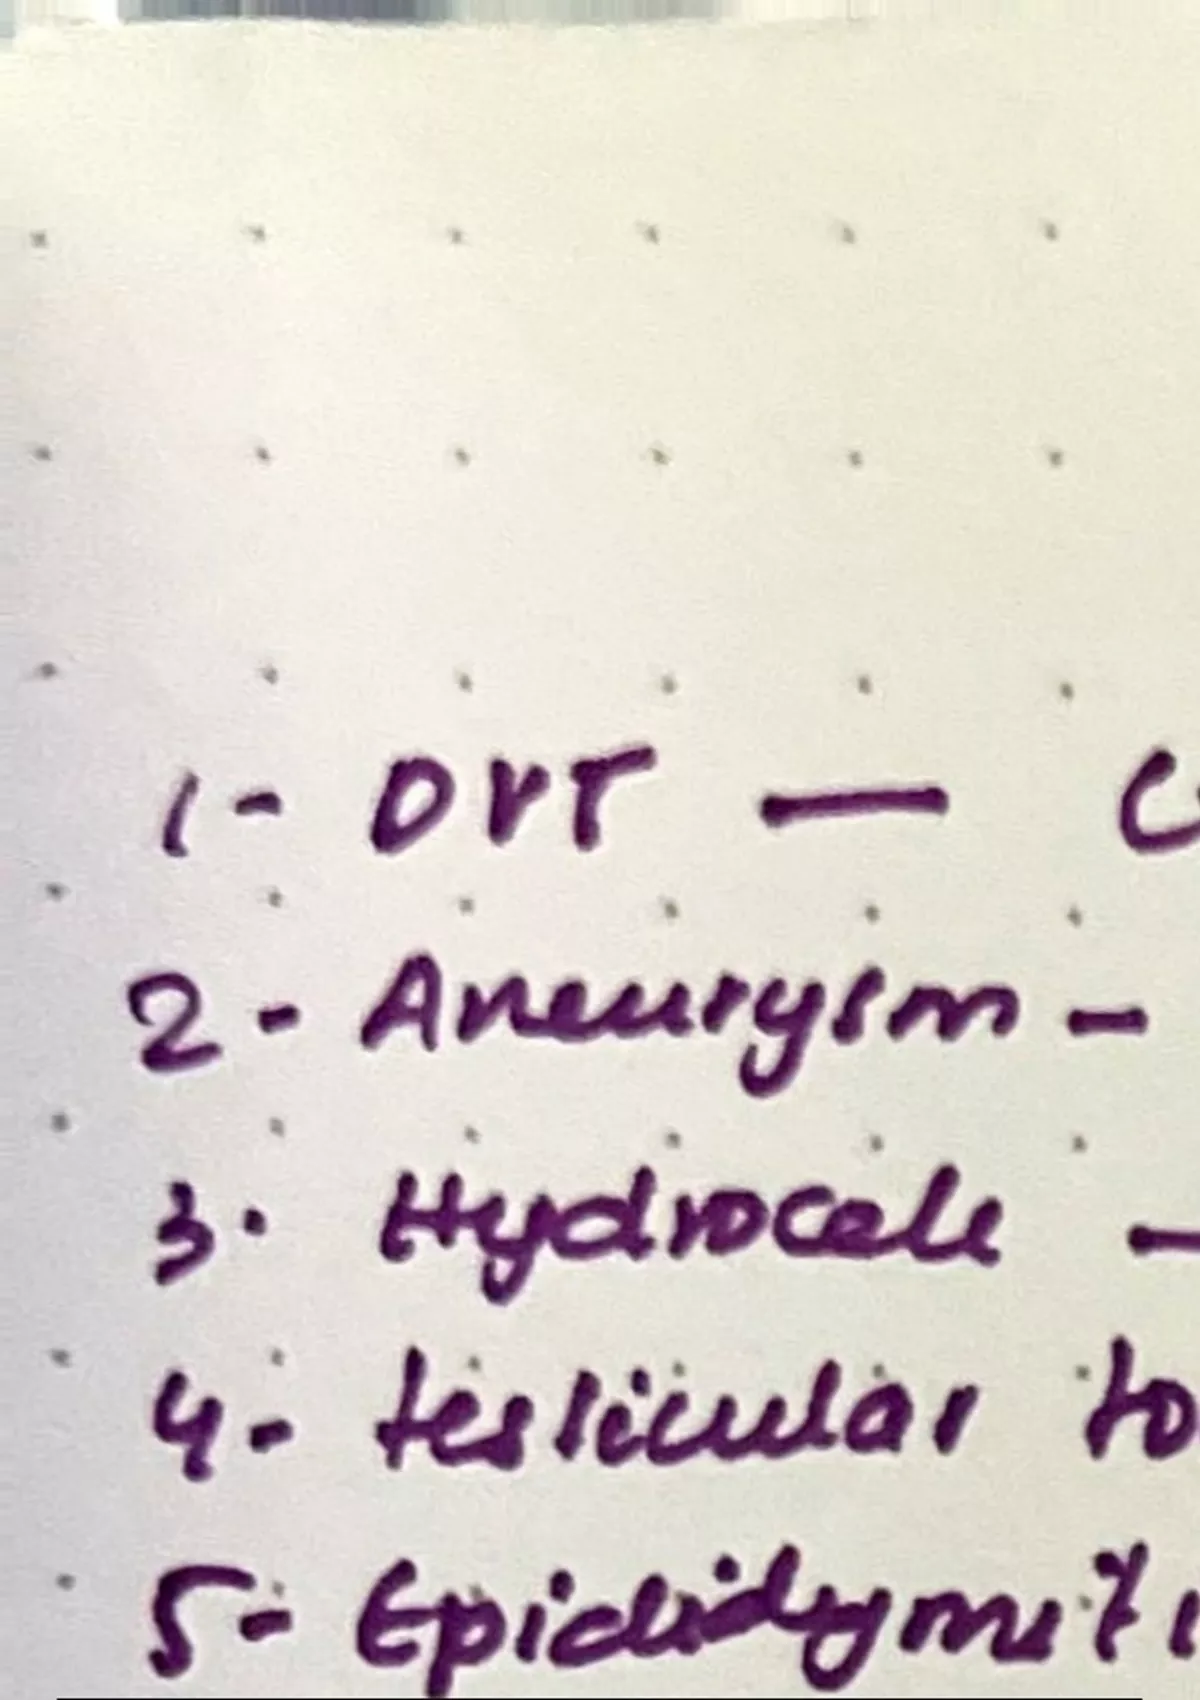 1- DVT — C
2- Aneurysm -
3. Hydrocele -
4- testicular to
5- Epididymiti